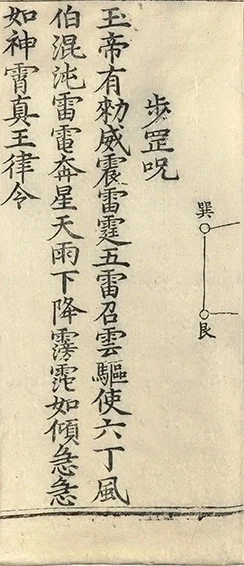 巽
艮
步罡呪
玉帝有勑威震雷霆五雷召雲驅使六丁風
伯混沌雷電奔星天雨下降霶霈如傾急急
如神霄真王律令